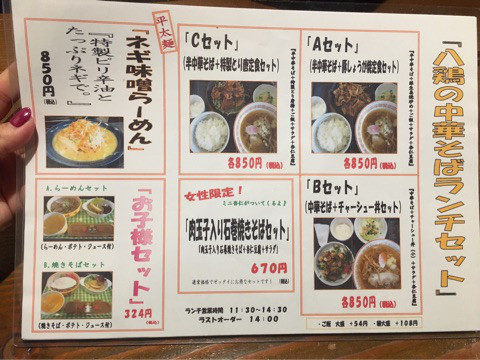 『八鶏の中華そばランチセット』
「Aセット」
(半中華そば+豚しょうが焼定食セット)
各850円(税込)
「Bセット」
(中華そば+チャーシュー丼セット)
各850円(税込)
・ご飯 大盛 +54円 ・麺大盛 +108円
「Cセット」
(半中華そば+特製とり唐定食セット)
各850円(税込)
女性限定!
ミニ杏仁がついてくるよ♪
「肉玉子入り石巻焼きそばセット」
(肉玉子入り石巻焼きそば+杏仁豆腐+サラダ)
670円
(税込)
ランチ営業時間 11:30~14:30
ラストオーダー 14:00
平太麺
『ネギ味噌らーめん』
『特製ピリ辛油と
たっぷりネギで。』
850円
(税込)
『お子様セット』
A.らーめんセット
(らーめん・ポテト・ジュース付)
B.焼きそばセット
(焼きそば・ポテト・ジュース付)
324円
(税込)